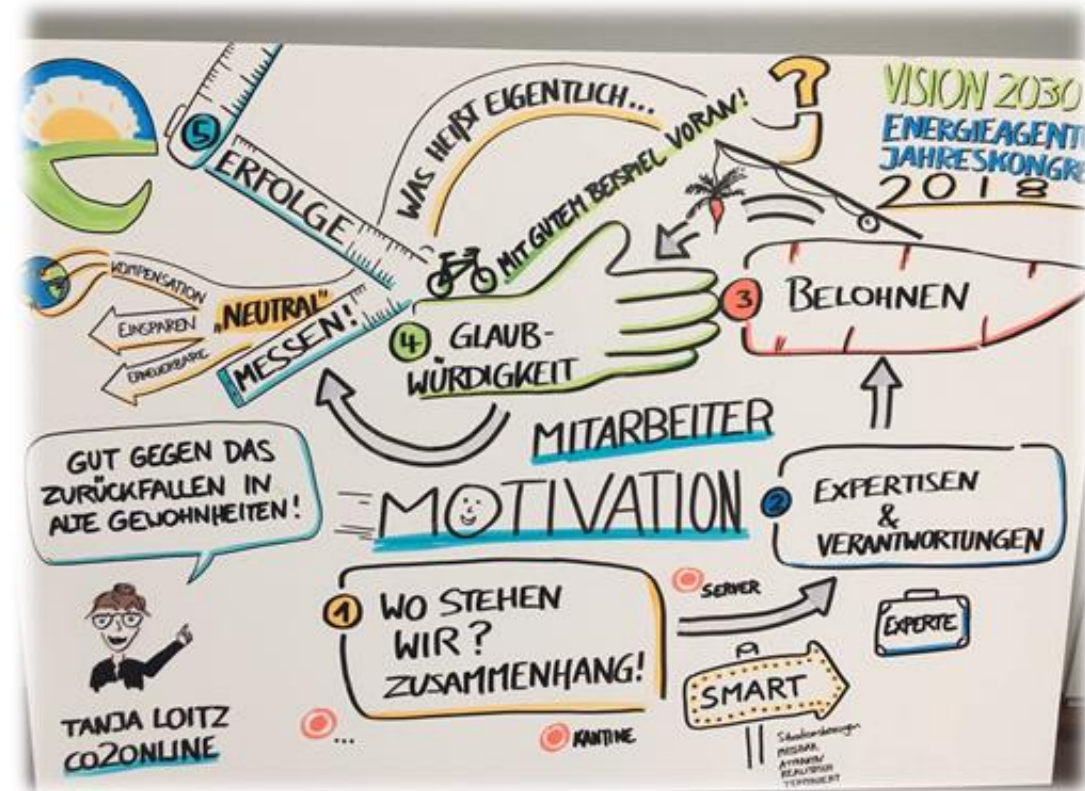 VISION 2030
ENERGIEAGENT
JAHRESKONGR
2018
WAS HEIßT EIGENTLICH...
?
MIT GUTEM BEISPIEL VORAN!
5
ERFOLGE
MESSEN!
KOMPENSATION
EINSPAREN
ERNEUERBARE
„NEUTRAL"
4 GLAUB-
WÜRDIGKEIT
3 BELOHNEN
MITARBEITER
MOTIVATION
2 EXPERTISEN
&
VERANTWORTUNGEN
GUT GEGEN DAS
ZURÜCKFALLEN IN
ALTE GEWOHNHEITEN!
1 WO STEHEN
WIR?
ZUSAMMENHANG!
SERVER
EXPERTE
SMART
MESSBAR
ATTRAKTIV
REALISTISCH
TERMINIERT
...
KANTINE
TANJA LOITZ
CO2ONLINE